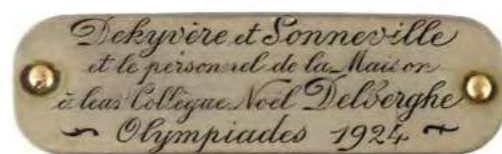 Dekyvère et Sonneville
et le personnel de la Maison
à leur Collègue Noël Delberghe
Olympiades 1924